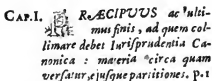 CAP.I. PRÆCIPUUS ac ulti-
mus finis, ad quem col-
limare debet Iurisprudentia Ca-
nonica : materia circa quam
versatur, ejusque partitiones. p. 1